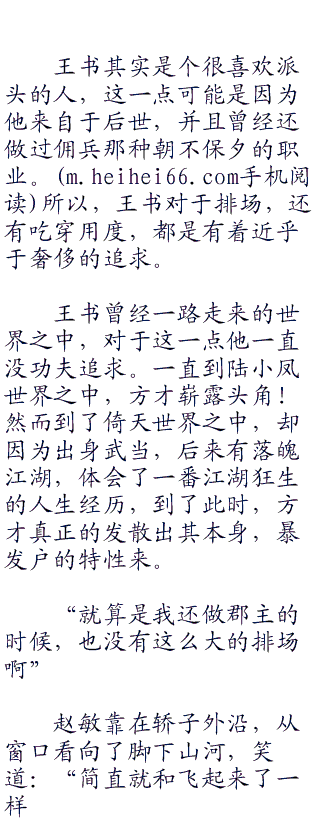 王书其实是个很喜欢派
头的人，这一点可能是因为
他来自于后世，并且曾经还
做过佣兵那种朝不保夕的职
业。(m.heihei66.com手机阅
读)所以，王书对于排场，还
有吃穿用度，都是有着近乎
于奢侈的追求。
王书曾经一路走来的世
界之中，对于这一点他一直
没功夫追求。一直到陆小凤
世界之中，方才崭露头角！
然而到了倚天世界之中，却
因为出身武当，后来有落魄
江湖，体会了一番江湖狂生
的人生经历，到了此时，方
才真正的发散出其本身，暴
发户的特性来。
“就算是我还做郡主的
时候，也没有这么大的排场
啊”
赵敏靠在轿子外沿，从
窗口看向了脚下山河，笑
道：“简直就和飞起来了一
样